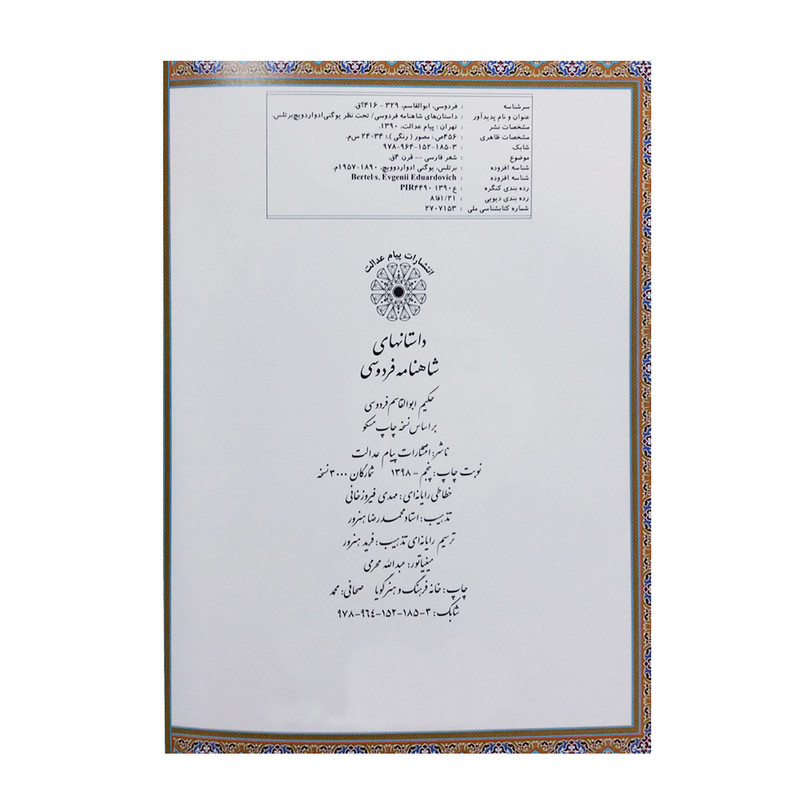 سرشناسه : فردوسی، ابوالقاسم، ۳۲۹ - ۴۱۶؟ق.
عنوان و نام پدیدآور : داستان‌های شاهنامه فردوسی/ تحت نظر یوگنی‌ادواردویچ‌برتلس.
مشخصات نشر : تهران : پیام عدالت، ۱۳۹۰.
مشخصات ظاهری : ۴۵۶ص: مصور ( رنگی )؛ ۳۴×۲۴ س‌م.
شابک : ۹۷۸-۹۶۴-۱۵۲-۱۸۵-۳
موضوع : شعر فارسی — قرن ۴ق.
شناسه افزوده : برتلس، یوگنی ادواردوویچ، ۱۸۹۰-۱۹۵۷م.
شناسه افزوده : Bertel's, Evgenii Eduardovich
رده بندی کنگره : PIR۴۴۹۰ ع۱۳۹۰
رده بندی دیویی : ۸فا۱/۲۱
شماره کتابشناسی ملی : ۲۷۰۷۱۵۳
انتشارات پیام عدالت
داستانهای
شاهنامه فردوسی
حکیم ابوالقاسم فردوسی
بر اساس نسخه چاپ مسکو
ناشر: انتشارات پیام عدالت
نوبت چاپ: پنجم - ۱۳۹۸ شمارگان ۳۰۰۰ نسخه
خطاطی رایانه‌ای : مهدی فیروزخانی
تذهیب : استاد محمدرضا هنرور
ترسیم رایانه‌ای تذهیب : فرید هنرور
مینیاتور : عبدالله محرمی
چاپ : خانه فرهنگ و هنر گویا صحافی : محمد
شابک : ۹۷۸-۹۶۴-۱۵۲-۱۸۵-۳